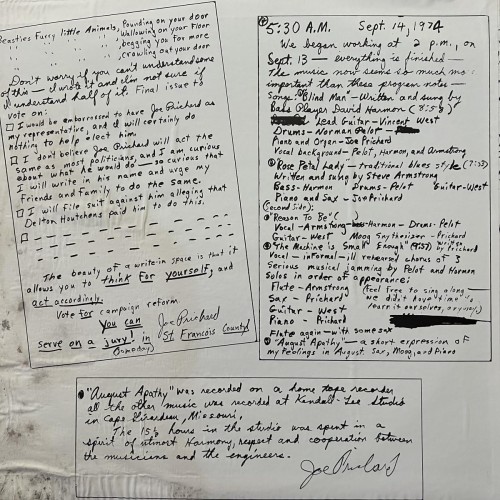 Beasties Furry little Animals, Pounding on your door
Wallowing on your Floor
begging you for more
crawling out your door
Don't worry if you can't understand some
of this — I wrote it and I'm not sure if
I understand half of it. Final issue to
vote on:
☐ I would be embarrassed to have Joe Prichard as
my representative, and I will certainly do
nothing to help elect him
☐ I don't believe Joe Prichard will act the
same as most politicians, and I am curious
about what he would do — so curious that
I will write in his name and urge my
Friends and Family to do the same.
☐ I will file suit against him alleging that
Delton Houtchens paid him to do this
☐
The beauty of a write-in space is that it
allows you to think for yourself, and
act accordingly.
Vote for campaign reform.
You can
serve on a jury! in
(someday)
Joe Prichard
St Francois County
5:30 A.M. Sept. 14, 1974
We began working at 2 p.m., on
Sept. 13 — everything is finished —
The music now seems so much more
important than these program notes —
Songs: Blind Man — Written and sung by
Bass Player David Harmon
Lead Guitar — Vincent West
Drums — Norman Pelot
Piano and Organ — Joe Prichard
Vocal Background — Pelot, Harmon, and Armstrong
Rose Petal Lady — Traditional blues style (7:23)
Written and sung by Steve Armstrong
Bass — Harmon Drums — Pelot Guitar — West
Piano and Sax — Joe Prichard
(second side):
"Reason To Be" ( )
Vocal — Armstrong Harmon — Drums — Pelot
Guitar — West Moog Synthesizer — Prichard
"The Machine is Small Enough" (9:57) by Prichard
Vocal — informal — ill rehearsed chorus of 3
Serious musical jamming by Pelot and Harmon
Solos in order of appearance:
Flute — Armstrong (feel free to sing along —
Sax — Prichard we didn't have time to
Guitar — West learn it ourselves, anyway)
Piano — Prichard
Flute again — with some sax
"August Apathy" — a short expression of
my feelings in August. Sax, Moog, and Piano
"August Apathy" was recorded on a home tape recorder
all the other music was recorded at Kendall-Lee Studio
in Cape Girardeau, Missouri.
The 15½ hours in the studio was spent in a
spirit of utmost Harmony, respect and cooperation between
the musicians and the engineers.
Joe Prichard